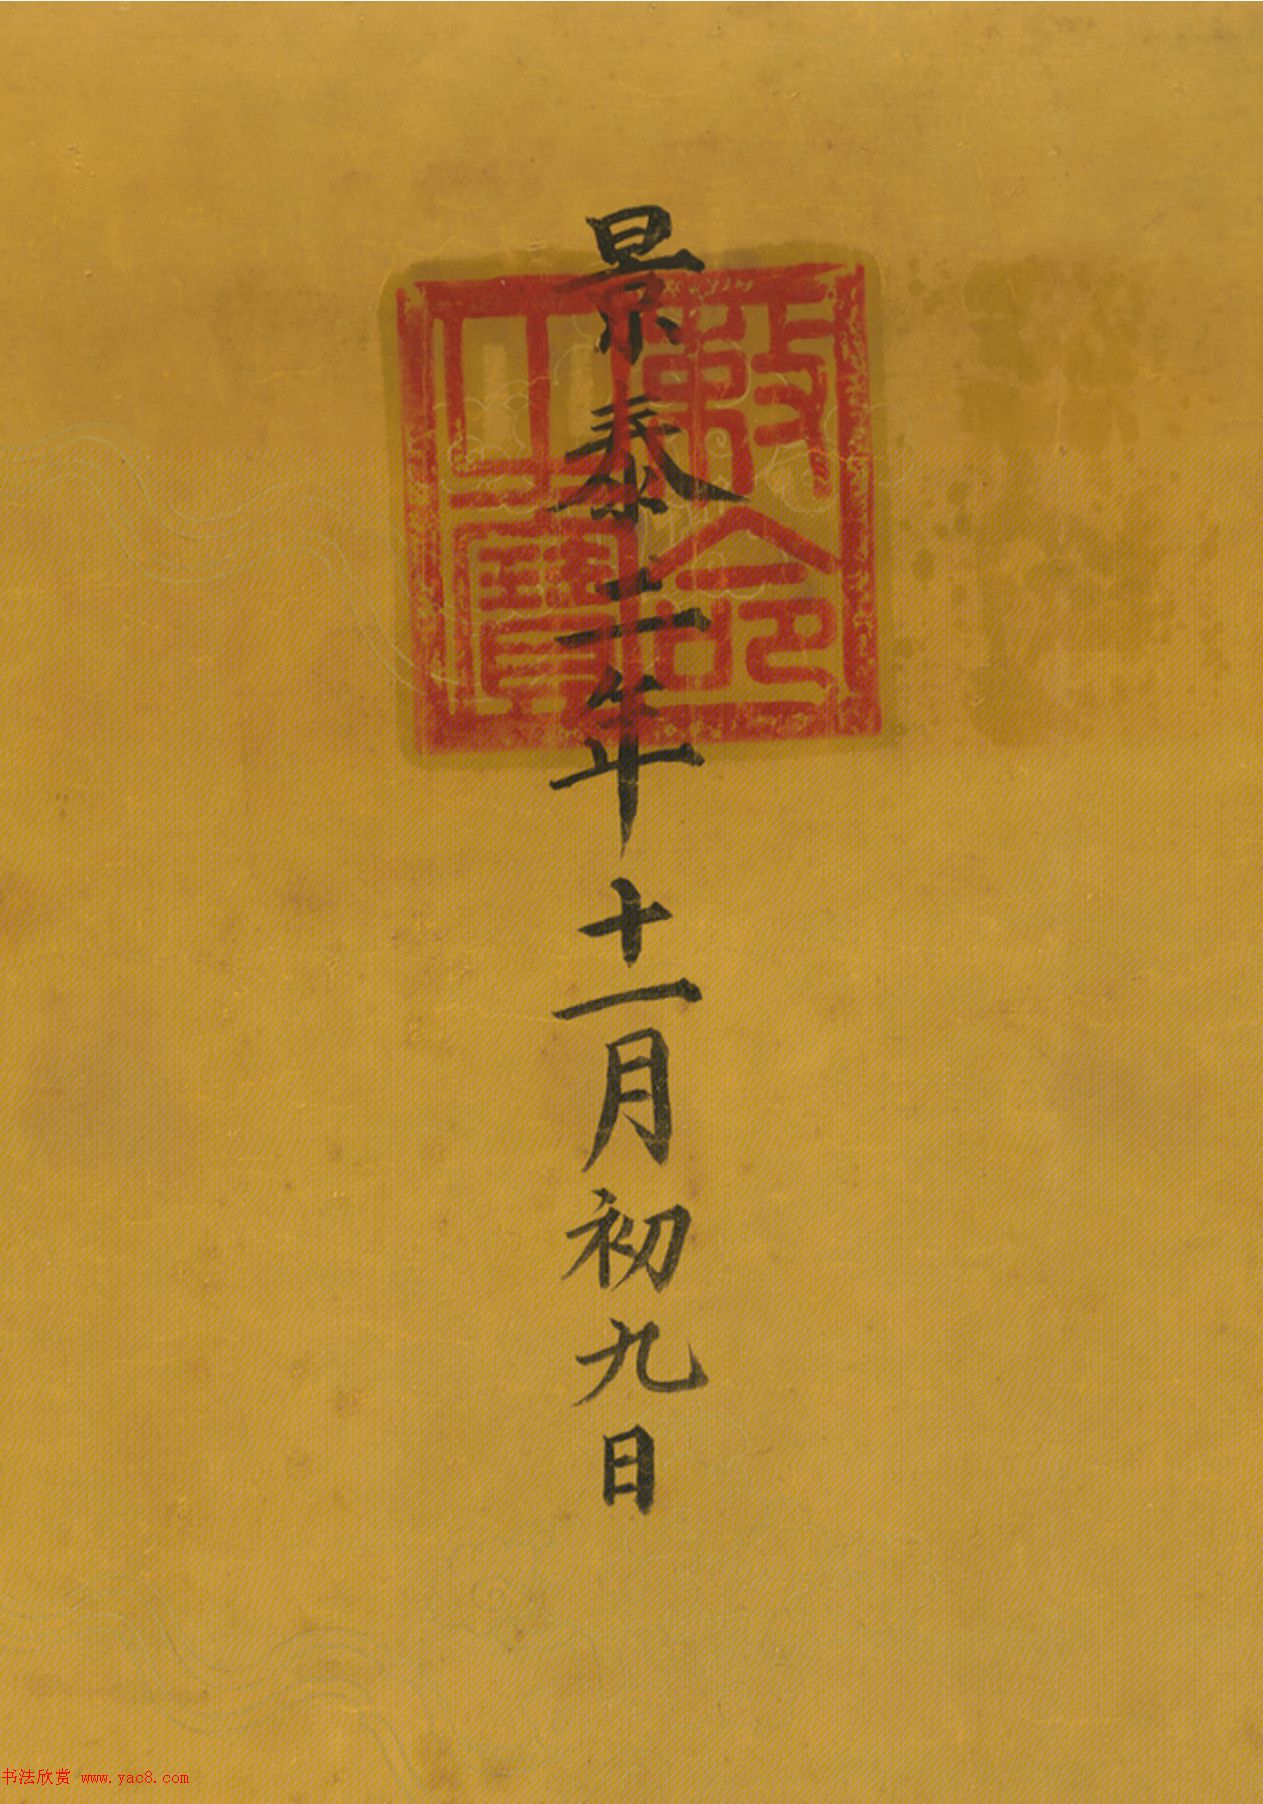 景泰二年十一月初九日
敕命之寶
书法欣赏 www.yac8.com